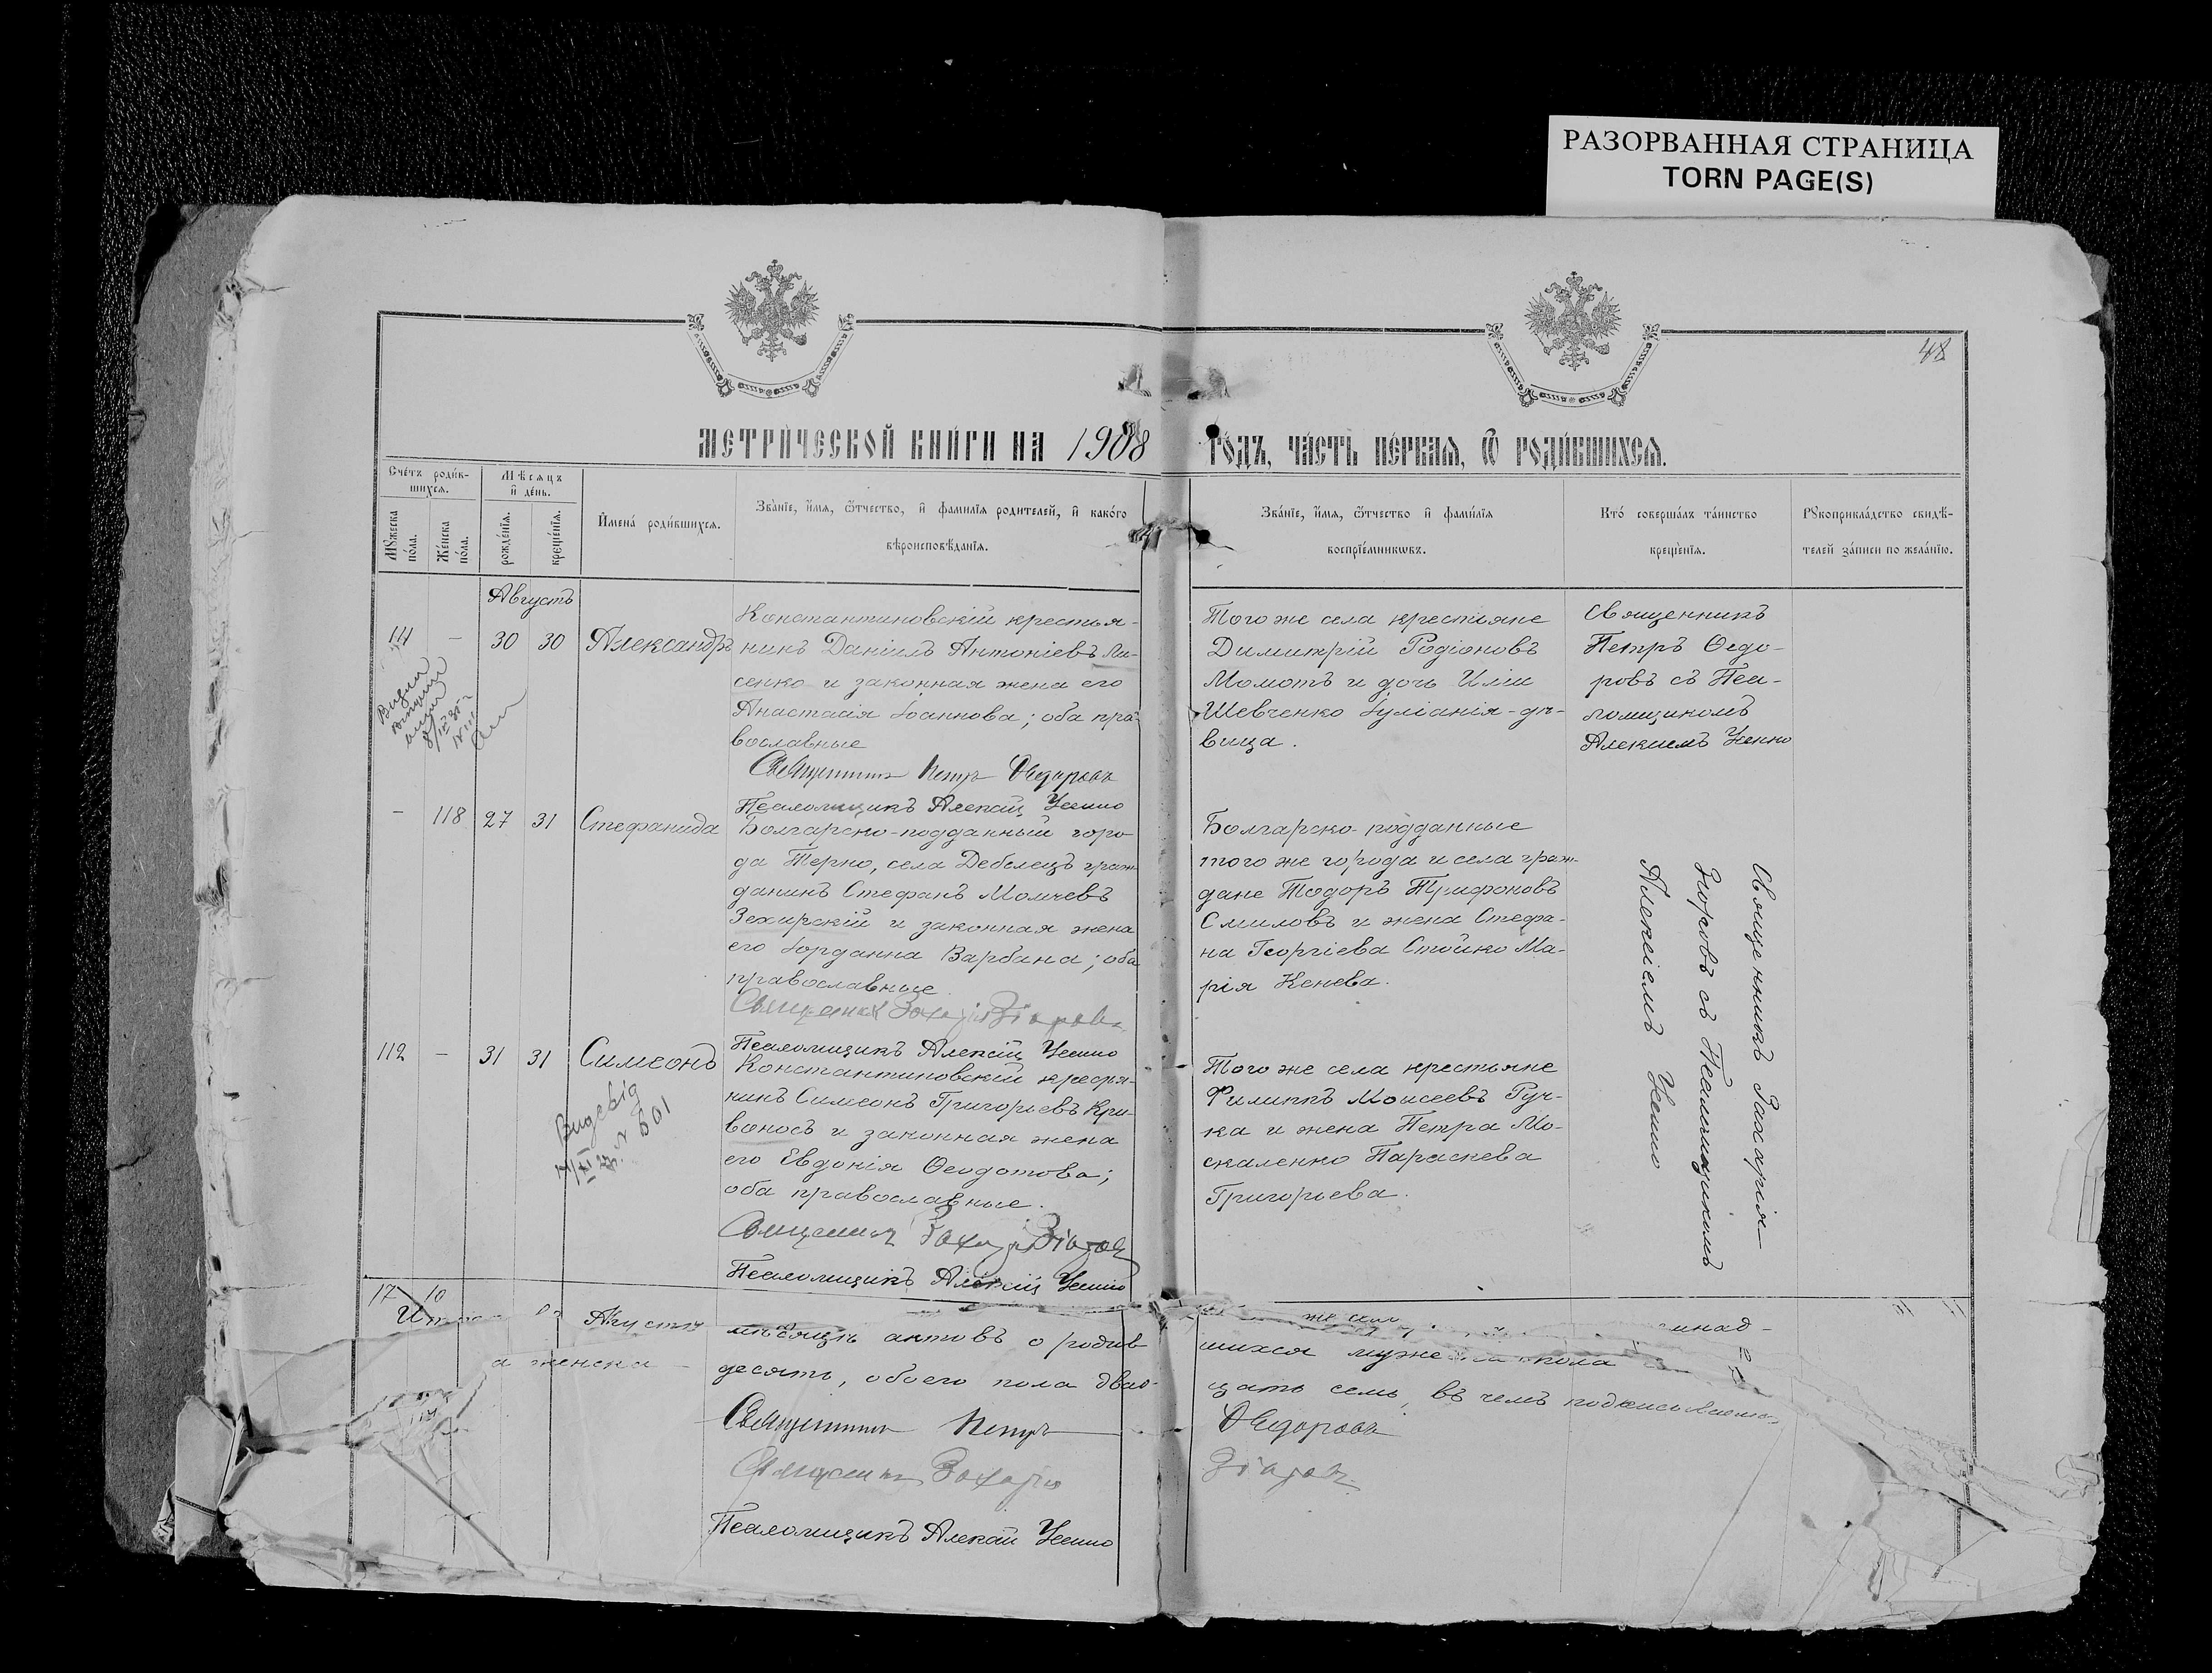 РАЗОРВАННАЯ СТРАНИЦА
TORN PAGE(S)
48
МЕТРИ́ЧЕСКОЙ КНИ́ГИ НА 1908 ГО́ДЪ, ЧА́СТЬ ПЕ́РВАЯ, Ѿ РОДИ́ВШИХСЯ.
Сче́тъ роди́в-
шихся.
Мѣсяцъ
и де́нь.
Мꙋжеска
по́ла.
Же́нска
по́ла.
рожде́нїя.
креще́нїя.
Имена́ роди́вшихся.
Зва́нїе, и́мя, ѻ́тчество, и фами́лїя родителей, и како́го
вѣроисповѣ́данїя.
Зва́нїе, и́мя, ѻ́тчество и фами́лїя
воспрїе́мникѡвъ.
Кто́ соверша́лъ та́инство
креще́нїя.
Рꙋкоприкла́дство свидѣ́-
телей за́писи по жела́нїю.
Августъ
111 - 30 30 Александръ
Константиновскій крестья-
нинъ Даніилъ Антоніевъ Ли-
сенко и законная жена его
Анастасія Іоаннова; оба пра-
вославные
Священникъ Петръ Ѳедоровъ
Псаломщикъ Алексій Усенко
Того же села крестьяне
Димитрій Родіоновъ
Момотъ и дочь Иліи
Шевченко Іуліанія - дѣ-
вица.
Священникъ
Петръ Ѳедо-
ровъ съ Пса-
ломщикомъ
Алексіемъ Усенко
- 118 27 31 Стефанида
Болгарско-подданный горо-
да Терно, села Дебелецъ граж-
данинъ Стефанъ Момчевъ
Зехирскій и законная жена
его Іорданна Варбана; оба
православные
Священникъ Захарія Згоровъ
Псаломщикъ Алексій Усенко
Болгарско-подданные
того же города и села граж-
дане Тодоръ Трифоновъ
Смиловъ и жена Стефа-
на Георгіева Стойко Ма-
рія Кенева.
Священникъ Захарія
Згоровъ съ Псаломщикомъ
Алексіемъ Усенко
112 - 31 31 Симеонъ
Видевід
501
Константиновскій крестья-
нинъ Симеонъ Григорьевъ Кри-
воносъ и законная жена
его Евдокія Ѳеодотова;
оба православные.
Священникъ Захарія Згоровъ
Псаломщикъ Алексій Усенко
Того же села крестьяне
Филиппъ Моисеевъ Руч-
ка и жена Петра Мо-
скаленко Параскева
Григорьева.
17 10
Августѣ мѣсяцѣ актовъ о родив
шихся муже пола
а женска десять, обоего пола двад-
цать семь, въ чемъ подписываемся
Священникъ Петръ Ѳедоровъ
Священникъ Захарія Згоровъ
Псаломщикъ Алексій Усенко